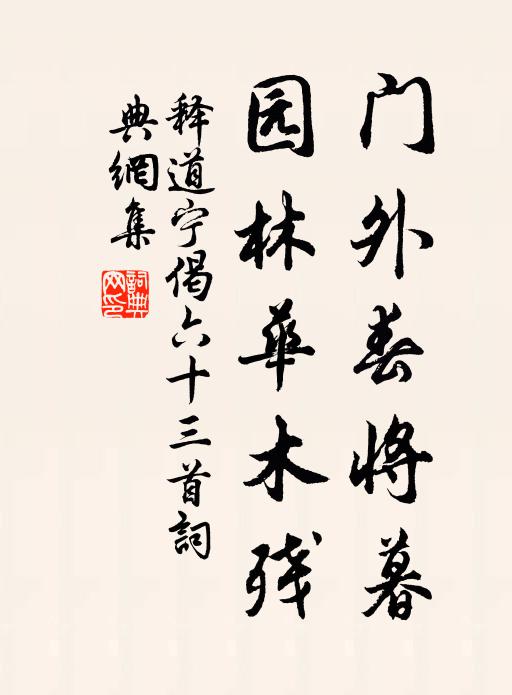 门外春将暮
园林华木残
释道宁偈六十三首詞
典網集
詞典網印